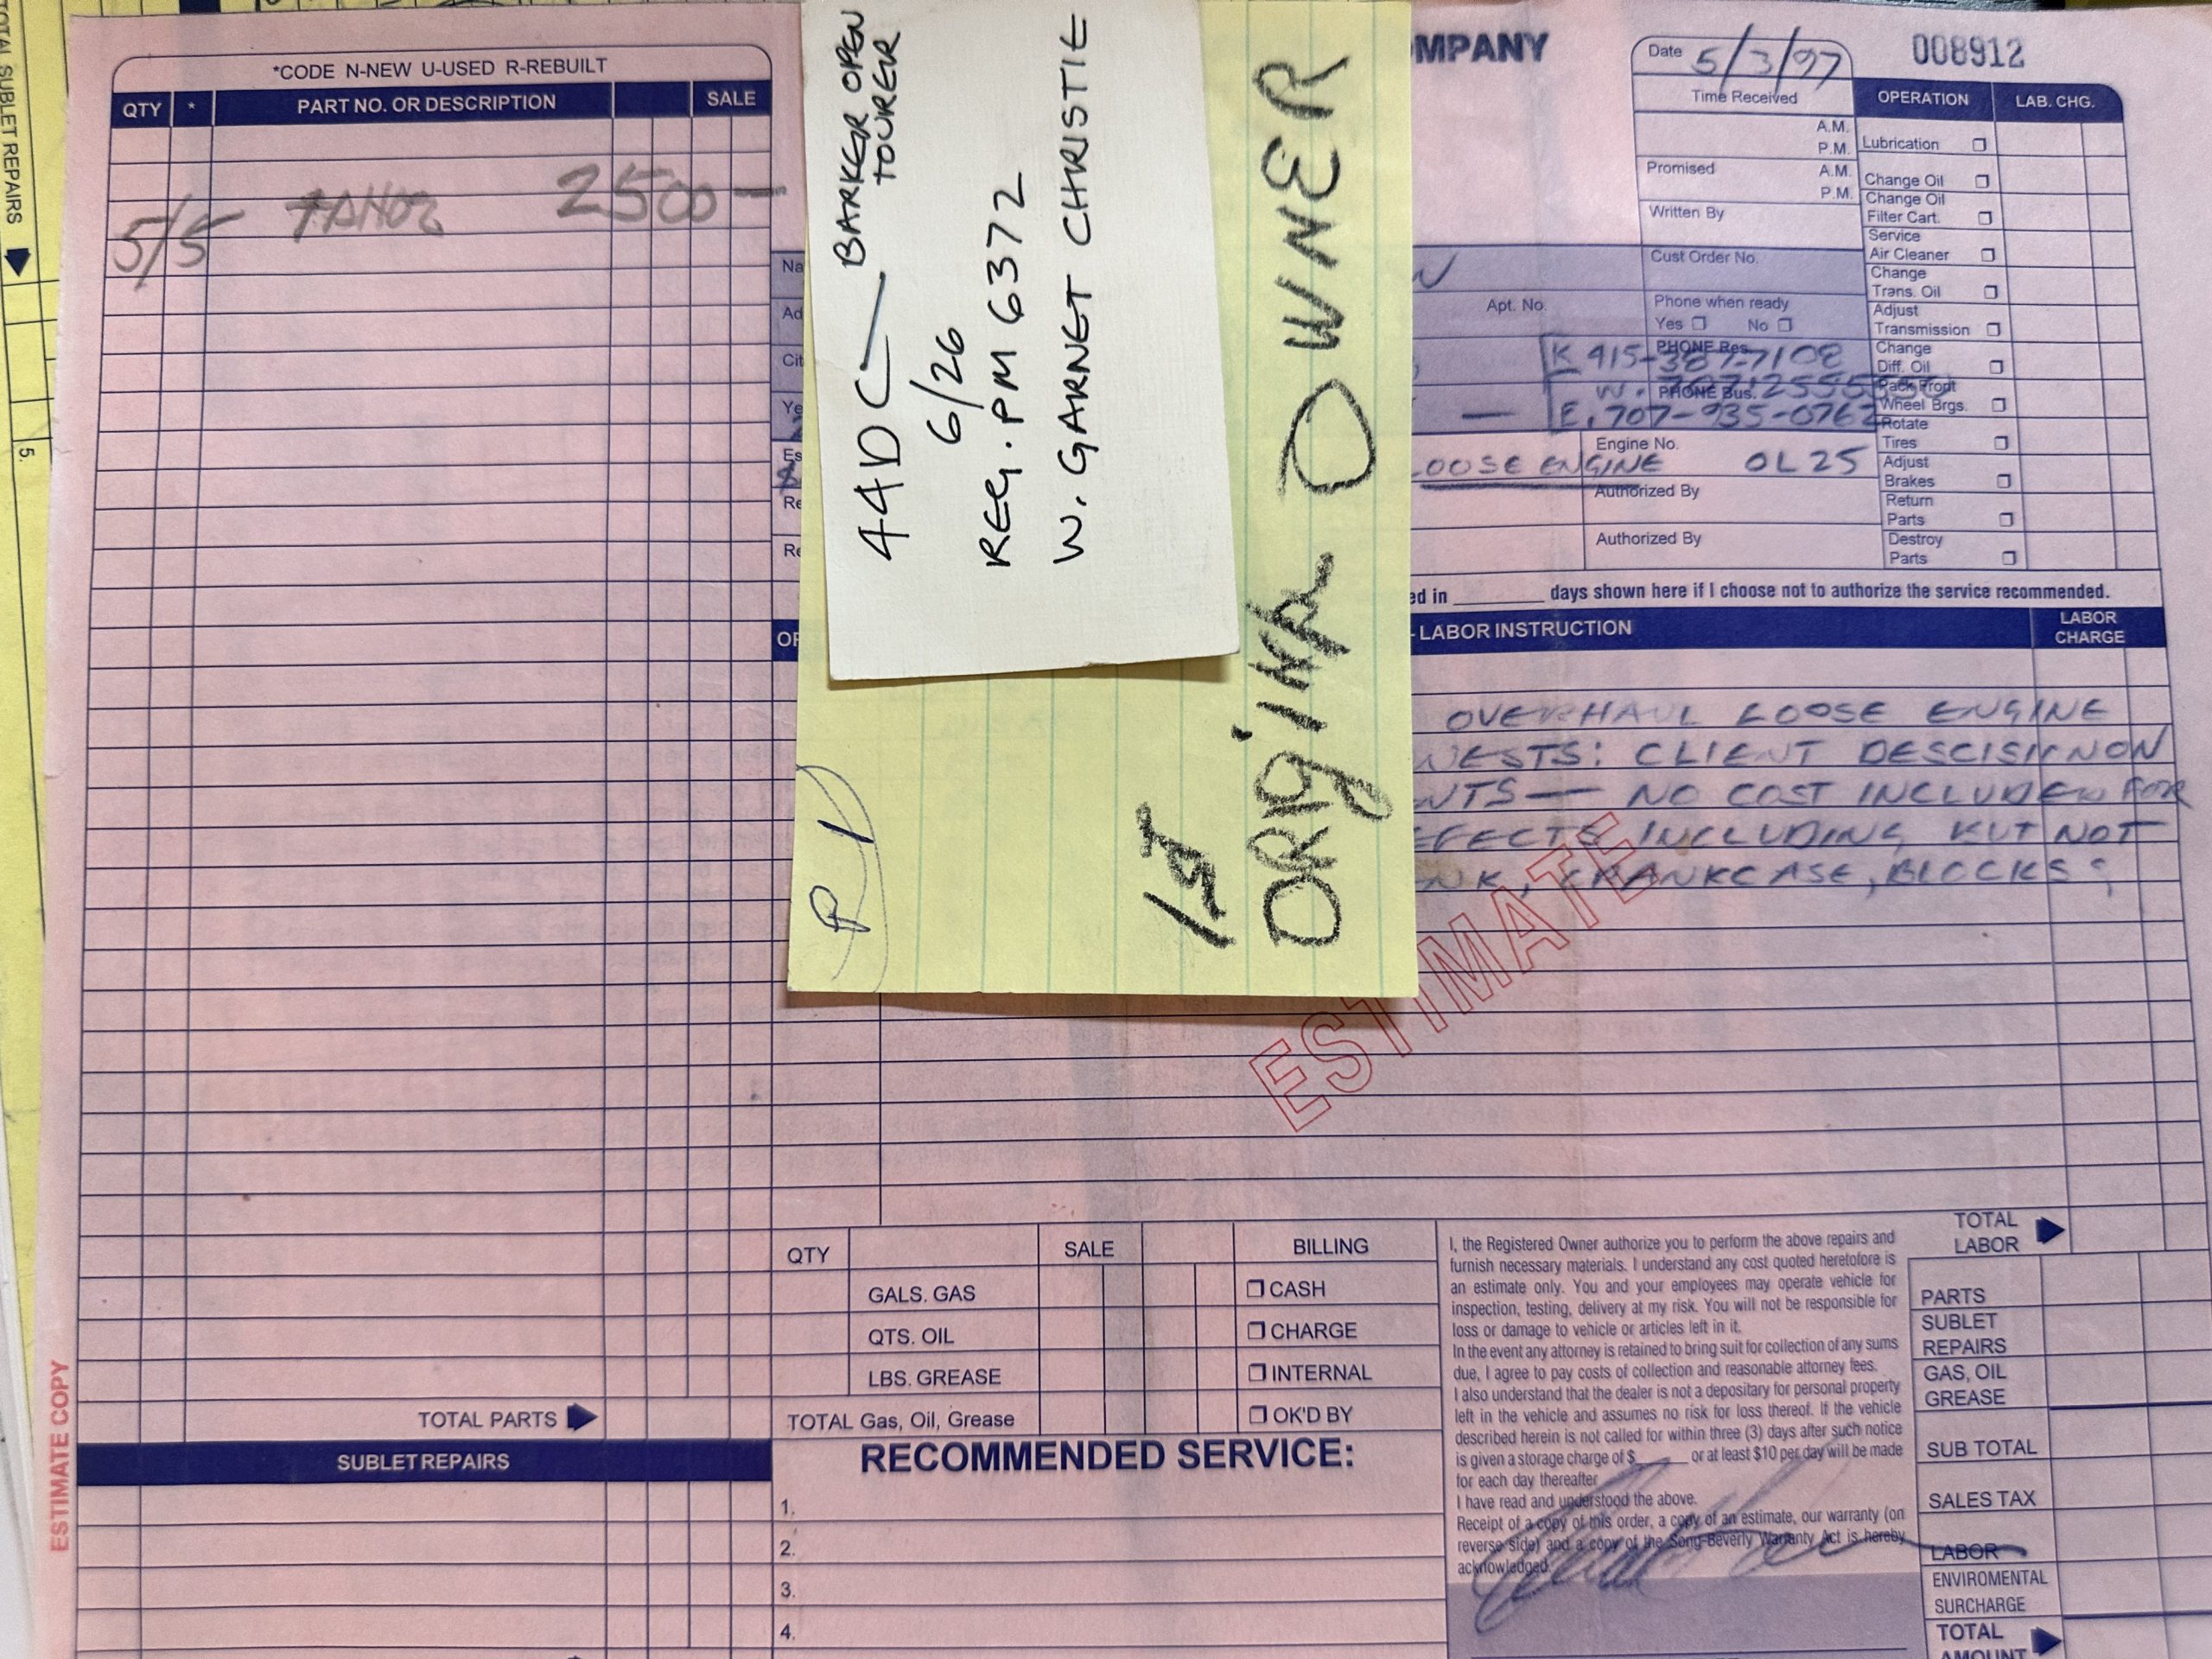 TOTAL SUBLET REPAIRS
5.
*CODE N-NEW U-USED R-REBUILT
QTY * PART NO. OR DESCRIPTION SALE
5/5 2500 —
TOTAL PARTS
SUBLET REPAIRS
ESTIMATE COPY
44DC — BARKER OPEN
TOURER
6/26
REG. PM 6372
W. GARNET CHRISTIE
P 1
1st
ORIgINA OWNER
MPANY
Date 5/3/97
008912
Time Received
A.M.
P.M.
Promised A.M.
P.M.
Written By
Cust Order No.
Apt. No.
Phone when ready
Yes No
PHONE Res.
415-387-7108
W.
PHONE Bus.
E. 707-935-0762
Engine No.
LOOSE ENGINE OL25
Authorized By
Authorized By
OPERATION LAB. CHG.
Lubrication
Change Oil
Change Oil
Filter Cart.
Service
Air Cleaner
Change
Trans. Oil
Adjust
Transmission
Change
Diff. Oil
Pack Front
Wheel Brgs.
Rotate
Tires
Adjust
Brakes
Return
Parts
Destroy
Parts
Na
Ad
Cit
Ye
Es
Re
Re
ed in ________ days shown here if I choose not to authorize the service recommended.
OP
- LABOR INSTRUCTION
LABOR
CHARGE
OVERHAUL LOOSE ENGINE
WESTS: CLIENT DESCISINON
NTS — NO COST INCLUDED FOR
EFFECTS INCLUDING, BUT NOT
NK, CRANKCASE, BLOCKS
ESTIMATE
QTY SALE BILLING
GALS. GAS CASH
QTS. OIL CHARGE
LBS. GREASE INTERNAL
TOTAL Gas, Oil, Grease OK'D BY
RECOMMENDED SERVICE:
1.
2.
3.
4.
I, the Registered Owner authorize you to perform the above repairs and
furnish necessary materials. I understand any cost quoted heretofore is
an estimate only. You and your employees may operate vehicle for
inspection, testing, delivery at my risk. You will not be responsible for
loss or damage to vehicle or articles left in it.
In the event any attorney is retained to bring suit for collection of any sums
due, I agree to pay costs of collection and reasonable attorney fees.
I also understand that the dealer is not a depositary for personal property
left in the vehicle and assumes no risk for loss thereof. If the vehicle
described herein is not called for within three (3) days after such notice
is given a storage charge of $______ or at least $10 per day will be made
for each day thereafter
I have read and understood the above.
Receipt of a copy of this order, a copy of an estimate, our warranty (on
reverse side) and a copy of the Song-Beverly Warranty Act is hereby
acknowledged.
TOTAL
LABOR
PARTS
SUBLET
REPAIRS
GAS, OIL
GREASE
SUB TOTAL
SALES TAX
LABOR
ENVIROMENTAL
SURCHARGE
TOTAL
AMOUNT